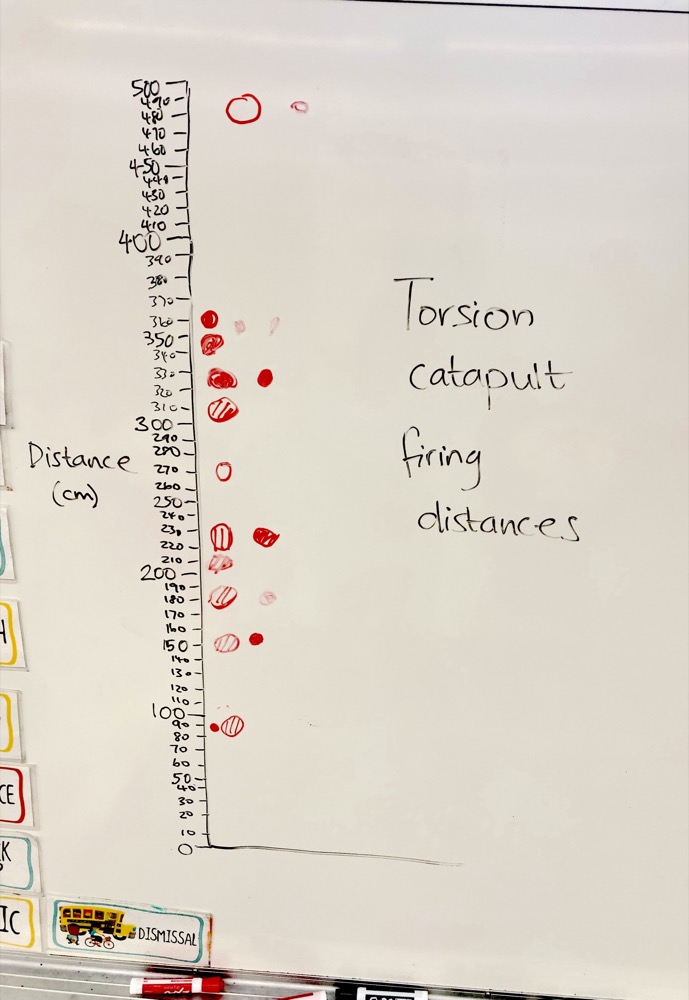 500
490
480
470
460
450
440
430
420
410
400
390
380
370
360
350
340
330
320
310
300
290
280
270
260
250
240
230
220
210
200
190
180
170
160
150
140
130
120
110
100
90
80
70
60
50
40
30
20
10
0
Distance
(cm)
Torsion
catapult
firing
distances
H
CE
K
IC
DISMISSAL